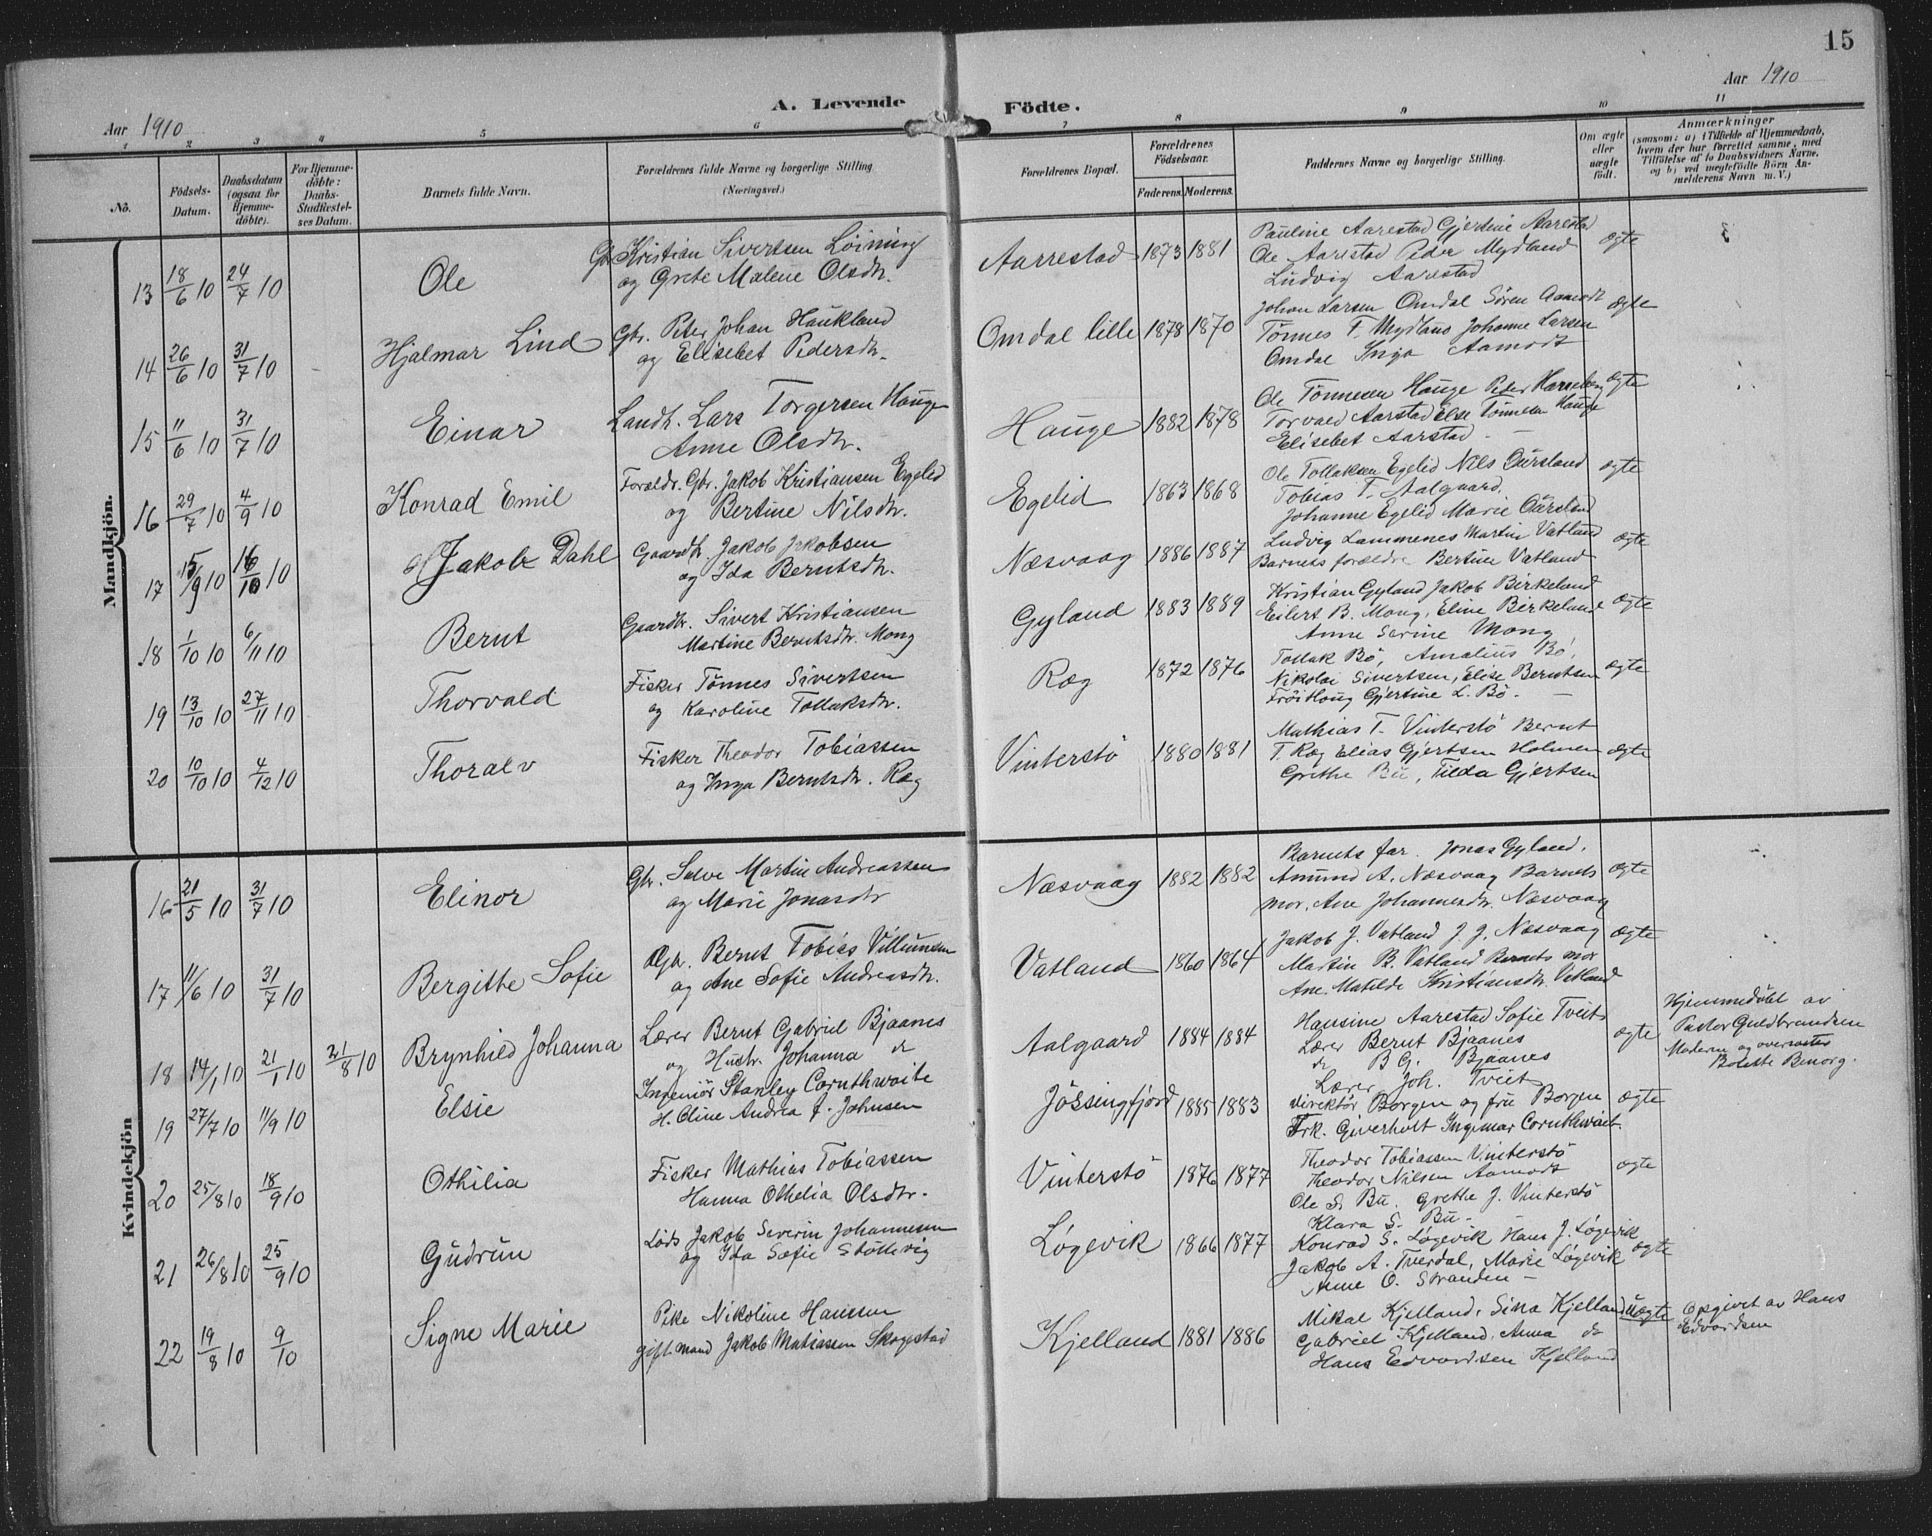 15
Aar 1910
A. Levende Födte.
Aar 1910
1 2 3 4 5 6 7 8 9 10 11
No.
Födsels-Datum.
Daabsdatum (ogsaa for Hjemme-döbte).
For Hjemme-döbte: Daabs-Stadfæstel-ses Datum.
Barnets fulde Navn.
Forældrenes fulde Navne og borgerlige Stilling (Næringsvei.)
Forældrenes Bopæl.
Forældrenes Födselsaar.
Faderens. Moderens.
Faddernes Navne og borgerlig Stilling.
Om ægte eller uægte födt.
Anmærkninger
(saasom: a) i Tilfælde af Hjemmedaab,
hvem der har forrettet samme, med
Tilföielse af to Daabsvidners Navne,
og b) ved uegtefödte Börn An-
melderens Navn m. V.)
Mandkjön.
13 18/6 10 24/7 10 Ole
Gbr Kristian Sivertsen Löining
og Grete Malene Olsdtr.
Aarrestad 1873 1881
Pauline Aarestad Gjertine Aarestad
Ole Aarestad Peder Mydland
Ludvig Aarestad
ægte
14 26/6 10 31/7 10 Hjalmar Lind
Gbr. Peter Johan Haukland
og Elisebet Pedersdtr.
Omdal lille 1878 1870
Johan Larsen Omdal Sören Aamodt
Tönnes T. Mydland Johanne Larsen
Omdal Inga Aamodt
ægte
15 11/6 10 31/7 10 Einar
Landh. Lars Torgersen Hauge
Anne Olsdtr.
Hauge 1882 1878
Ole Tönnesen Hauge Peder
Torvald Aarstad Else Tönnesen Hauge
Elisebet Aarstad
ægte
16 29/7 10 4/9 10 Konrad Emil
Foreldr. Gbr. Jakob Kristiansen Egelid
og Bertine Nilsdtr.
Egelid 1863 1868
Ole Tollaksen Egelid Nils Oursland
Tobias T. Aalgaard.
Johanne Egelid Marie Oursland
ægte
17 15/9 10 16/10 10 Jakob Dahl
Gaardbr. Jakob Jakobsen
og Ida Berntsdtr.
Næsvaag 1886 1887
Ludvig Lammenes Martin Vatland
Barnets forældre Bertine Vatland
ægte
18 1/10 10 6/11 10 Bernt
Gaardbr. Sivert Kristiansen
Martine Berntsdtr. Mong
Gyland 1883 1889
Kristian Gyland Jakob Birkeland
Eilert B. Mong, Eline Birkeland
Anne Serine Mong
ægte
19 13/10 10 27/11 10 Thorvald
Fisker Tönnes Sivertsen
og Karoline Tollaksdtr.
Ræg 1872 1876
Tollak Bö, Amalius Bö,
Nikolai Sivertsen, Elise Berntsen
Fröitlong Gjertine L. Bö.
ægte
20 10/10 10 4/12 10 Thoralv
Fisker Theodor Tobiassen
og Inga Berntsdtr. Ræg
Vinterstö 1880 1881
Mathias T. Vinterstö Bernt
T. Ræg Elias Gjertsen Holmen
Grethe Bu, Tilda Gjertsen
ægte
Kvindekjön
16 21/5 10 31/7 10 Elinor
Gbr. Salve Martin Andreassen
og Marie Jonasdtr
Næsvaag 1882 1882
Barnets far. Jonas Gyland.
Amund A. Næsvaag Barnets
mor. Ane Johannesdtr. Næsvaag
ægte
17 11/6 10 31/7 10 Bergitte Sofie
Gbr. Bernt Tobias Villumsen
og Ane Sofie Andreasdtr.
Vatland 1860 1864
Jakob J. Vatland J. J. Næsvaag
Martin B. Vatland Barnets mor
Ane Matilde Kristiansdtr. Vatland
ægte
18 14/1 10 21/1 10 21/8 10 Brynhild Johanna
Lærer Bernt Gabriel Bjaanes
og Hustr. Johanna do
Aalgaard 1884 1884
Hansine Aarestad Sofie Tveit
Lærer Bernt Bjaanes
do B G. Bjaanes
Lærer Joh. Tveit
ægte
Hjemmedöbt av
Pastor Guldbrandsen
Moderen og
19 27/7 10 11/9 10 Elsie
Ingeniör Stanley Cornthwaite
H. Cline Andrea f. Johnsen
Jössingfjord 1885 1883
direktör Borgen og fru Borgen
Frk. Giverholt Ingemar Cornthwait.
ægte
20 25/8 10 18/9 10 Othilia
Fisker Mathias Tobiassen
Hanna Othelia Olsdtr.
Vinterstö 1876 1877
Theodor Tobiassen Vinterstö
Theodor Nilsen Aamodt
Ole S. Bu. Grethe J. Vinterstö
Klara S. Bu
ægte
21 26/8 10 25/9 10 Gudrun
Lods Jakob Severin Johannesen
og Ida Sofie Stöllevig
Løgevik 1866 1877
Konrad S. Løgevik Hans J. Løgevik
Jakob A. Tverdal, Marie Løgevik
Anne O. Stranden
ægte
22 19/8 10 9/10 Signe Marie
Pike Nikoline Hansen
gift mand Jakob Matiassen Skogestad
Kjelland 1881 1886
Mikal Kjelland, Sina Kjelland
Gabriel Kjelland, Anna do
Hans Edvardsen Kjelland
uægte
Opgivet av Hans
Edvardsen